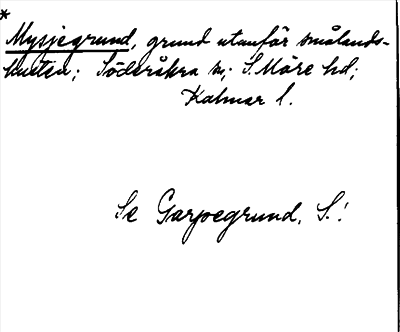 *
Mysjegrund, grund utanför smålands-
kusten; Söderåkra sn; S. Möre hd;
Kalmar l.
Se Garpegrund, S.!